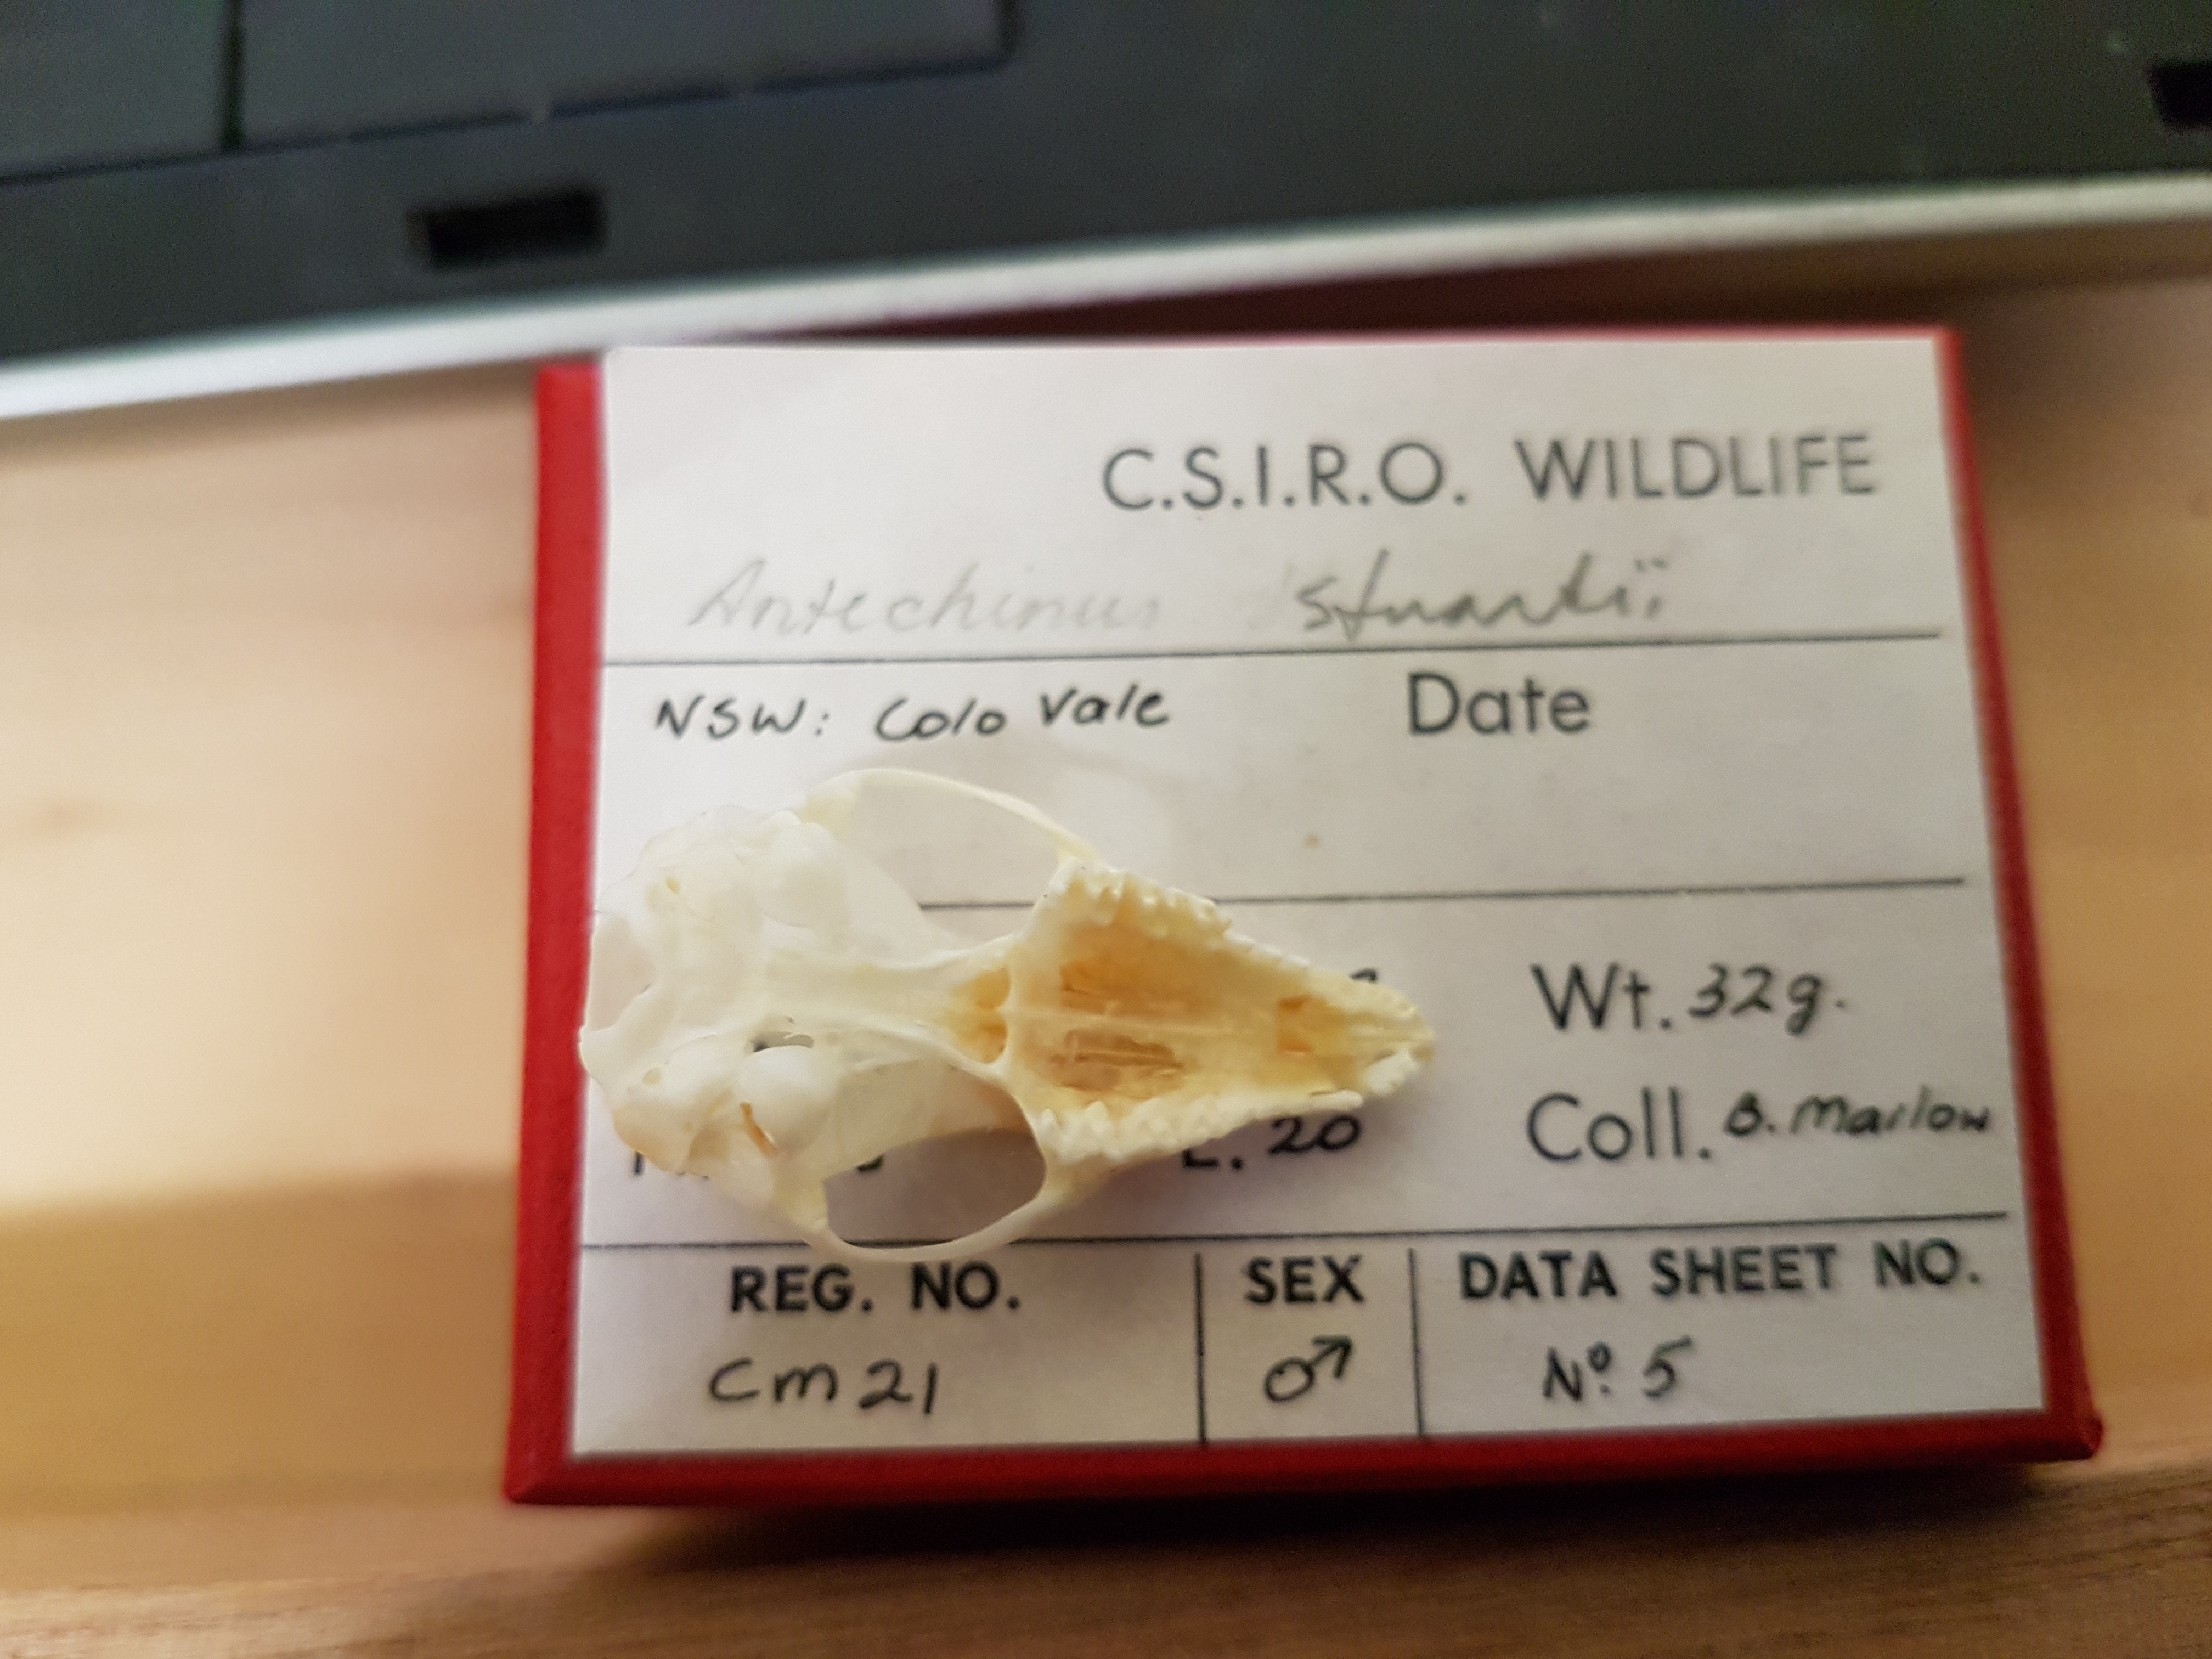 C.S.I.R.O. WILDLIFE
Antechinus stuartii
NSW: Colo Vale Date
Wt. 32g.
E. 20 Coll. B. Marlow
REG. NO. SEX DATA SHEET NO.
CM 21 ♂ Nº 5